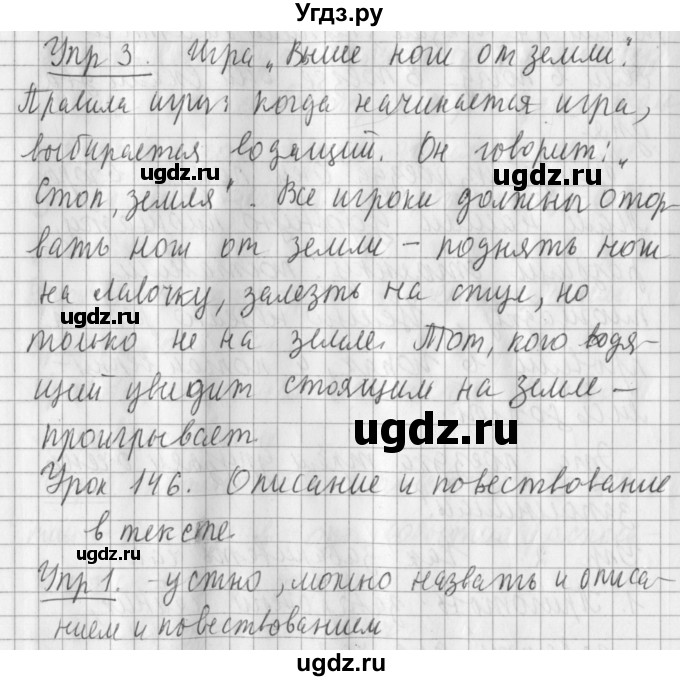 Угдз.ру
Упр 3. Игра „Выше ног от земли".
Правила игры: когда начинается игра,
выбирается водящий. Он говорит: „
ugdz.ru ugdz.ru
Стоп, земля". Все игроки должны отор-
вать ноги от земли – поднять ноги
на лавочку, залезть на стул, но
ugdz.ru
только не на земле. Тот, кого водя-
щий увидит стоящим на земле –
проигрывает
ugdz.ru
Урок 146. Описание и повествование
в тексте
ugdz.ru
Упр 1. – устно, можно назвать и описа-
нием и повествованием
ugdz.ru